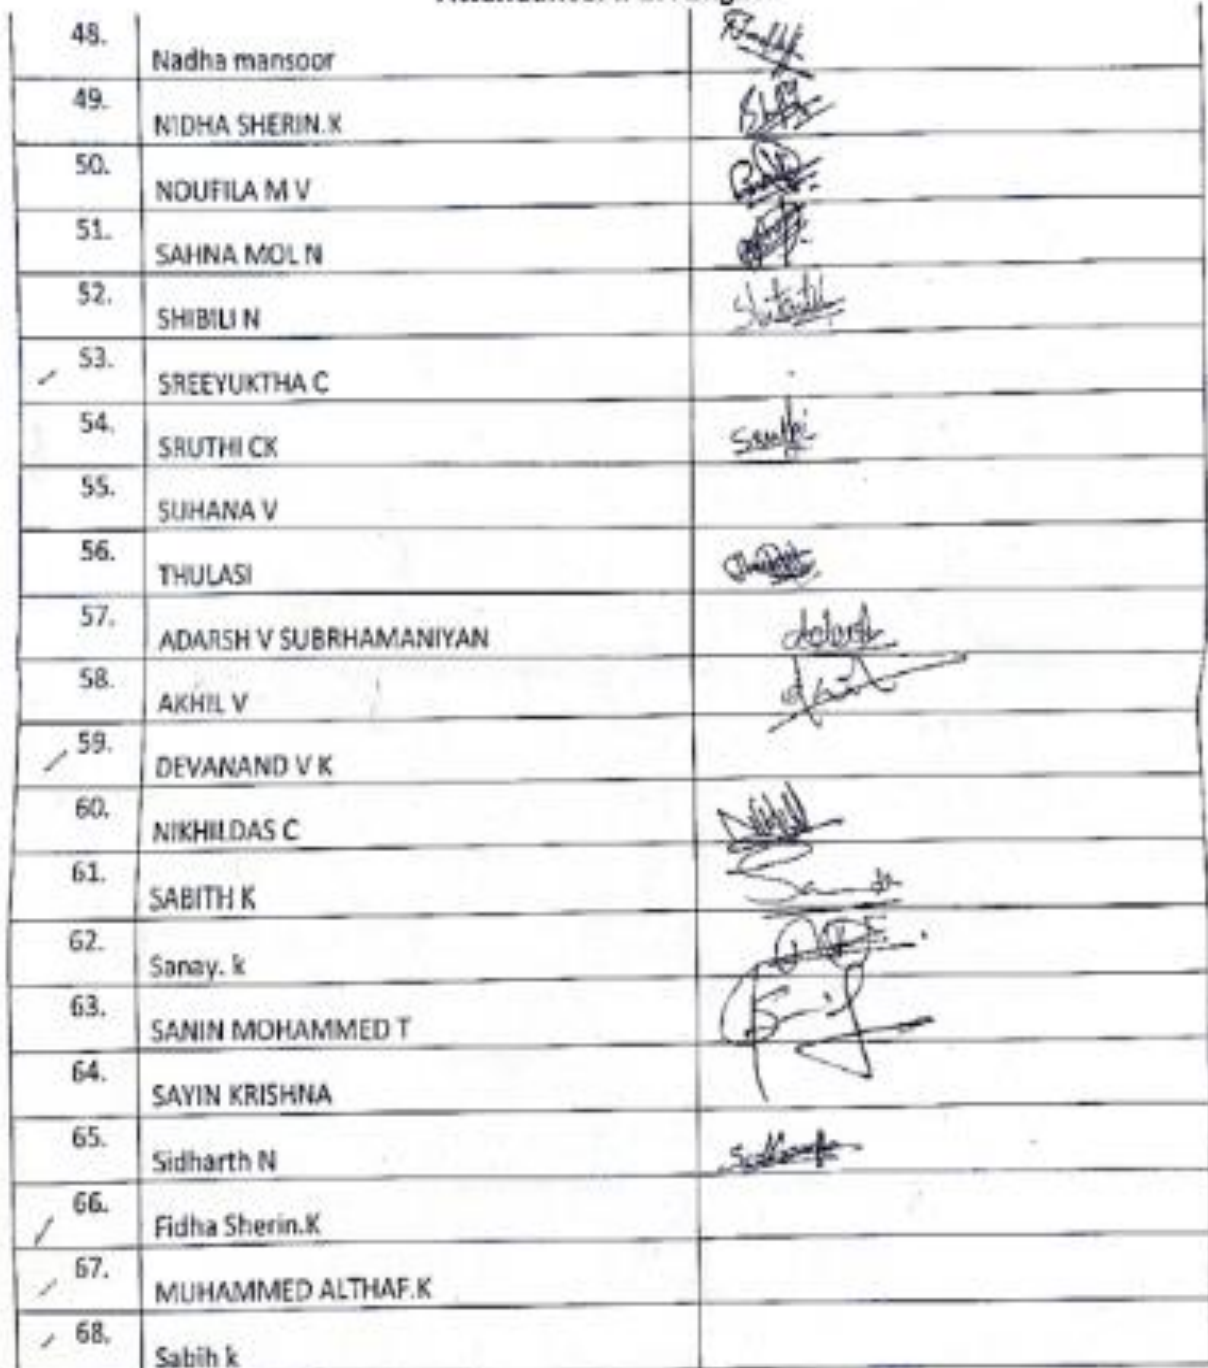 48. Nadha mansoor
49. NIDHA SHERIN.K
50. NOUFILA M V
51. SAHNA MOL N
52. SHIBILI N
53. SREEYUKTHA C
54. SRUTHI CK Sruthi
55. SUHANA V
56. THULASI
57. ADARSH V SUBRHAMANIYAN Adarsh
58. AKHIL V
59. DEVANAND V K
60. NIKHILDAS C
61. SABITH K
62. Sanay. k
63. SANIN MOHAMMED T
64. SAYIN KRISHNA
65. Sidharth N
66. Fidha Sherin.K
67. MUHAMMED ALTHAF.K
68. Sabih k